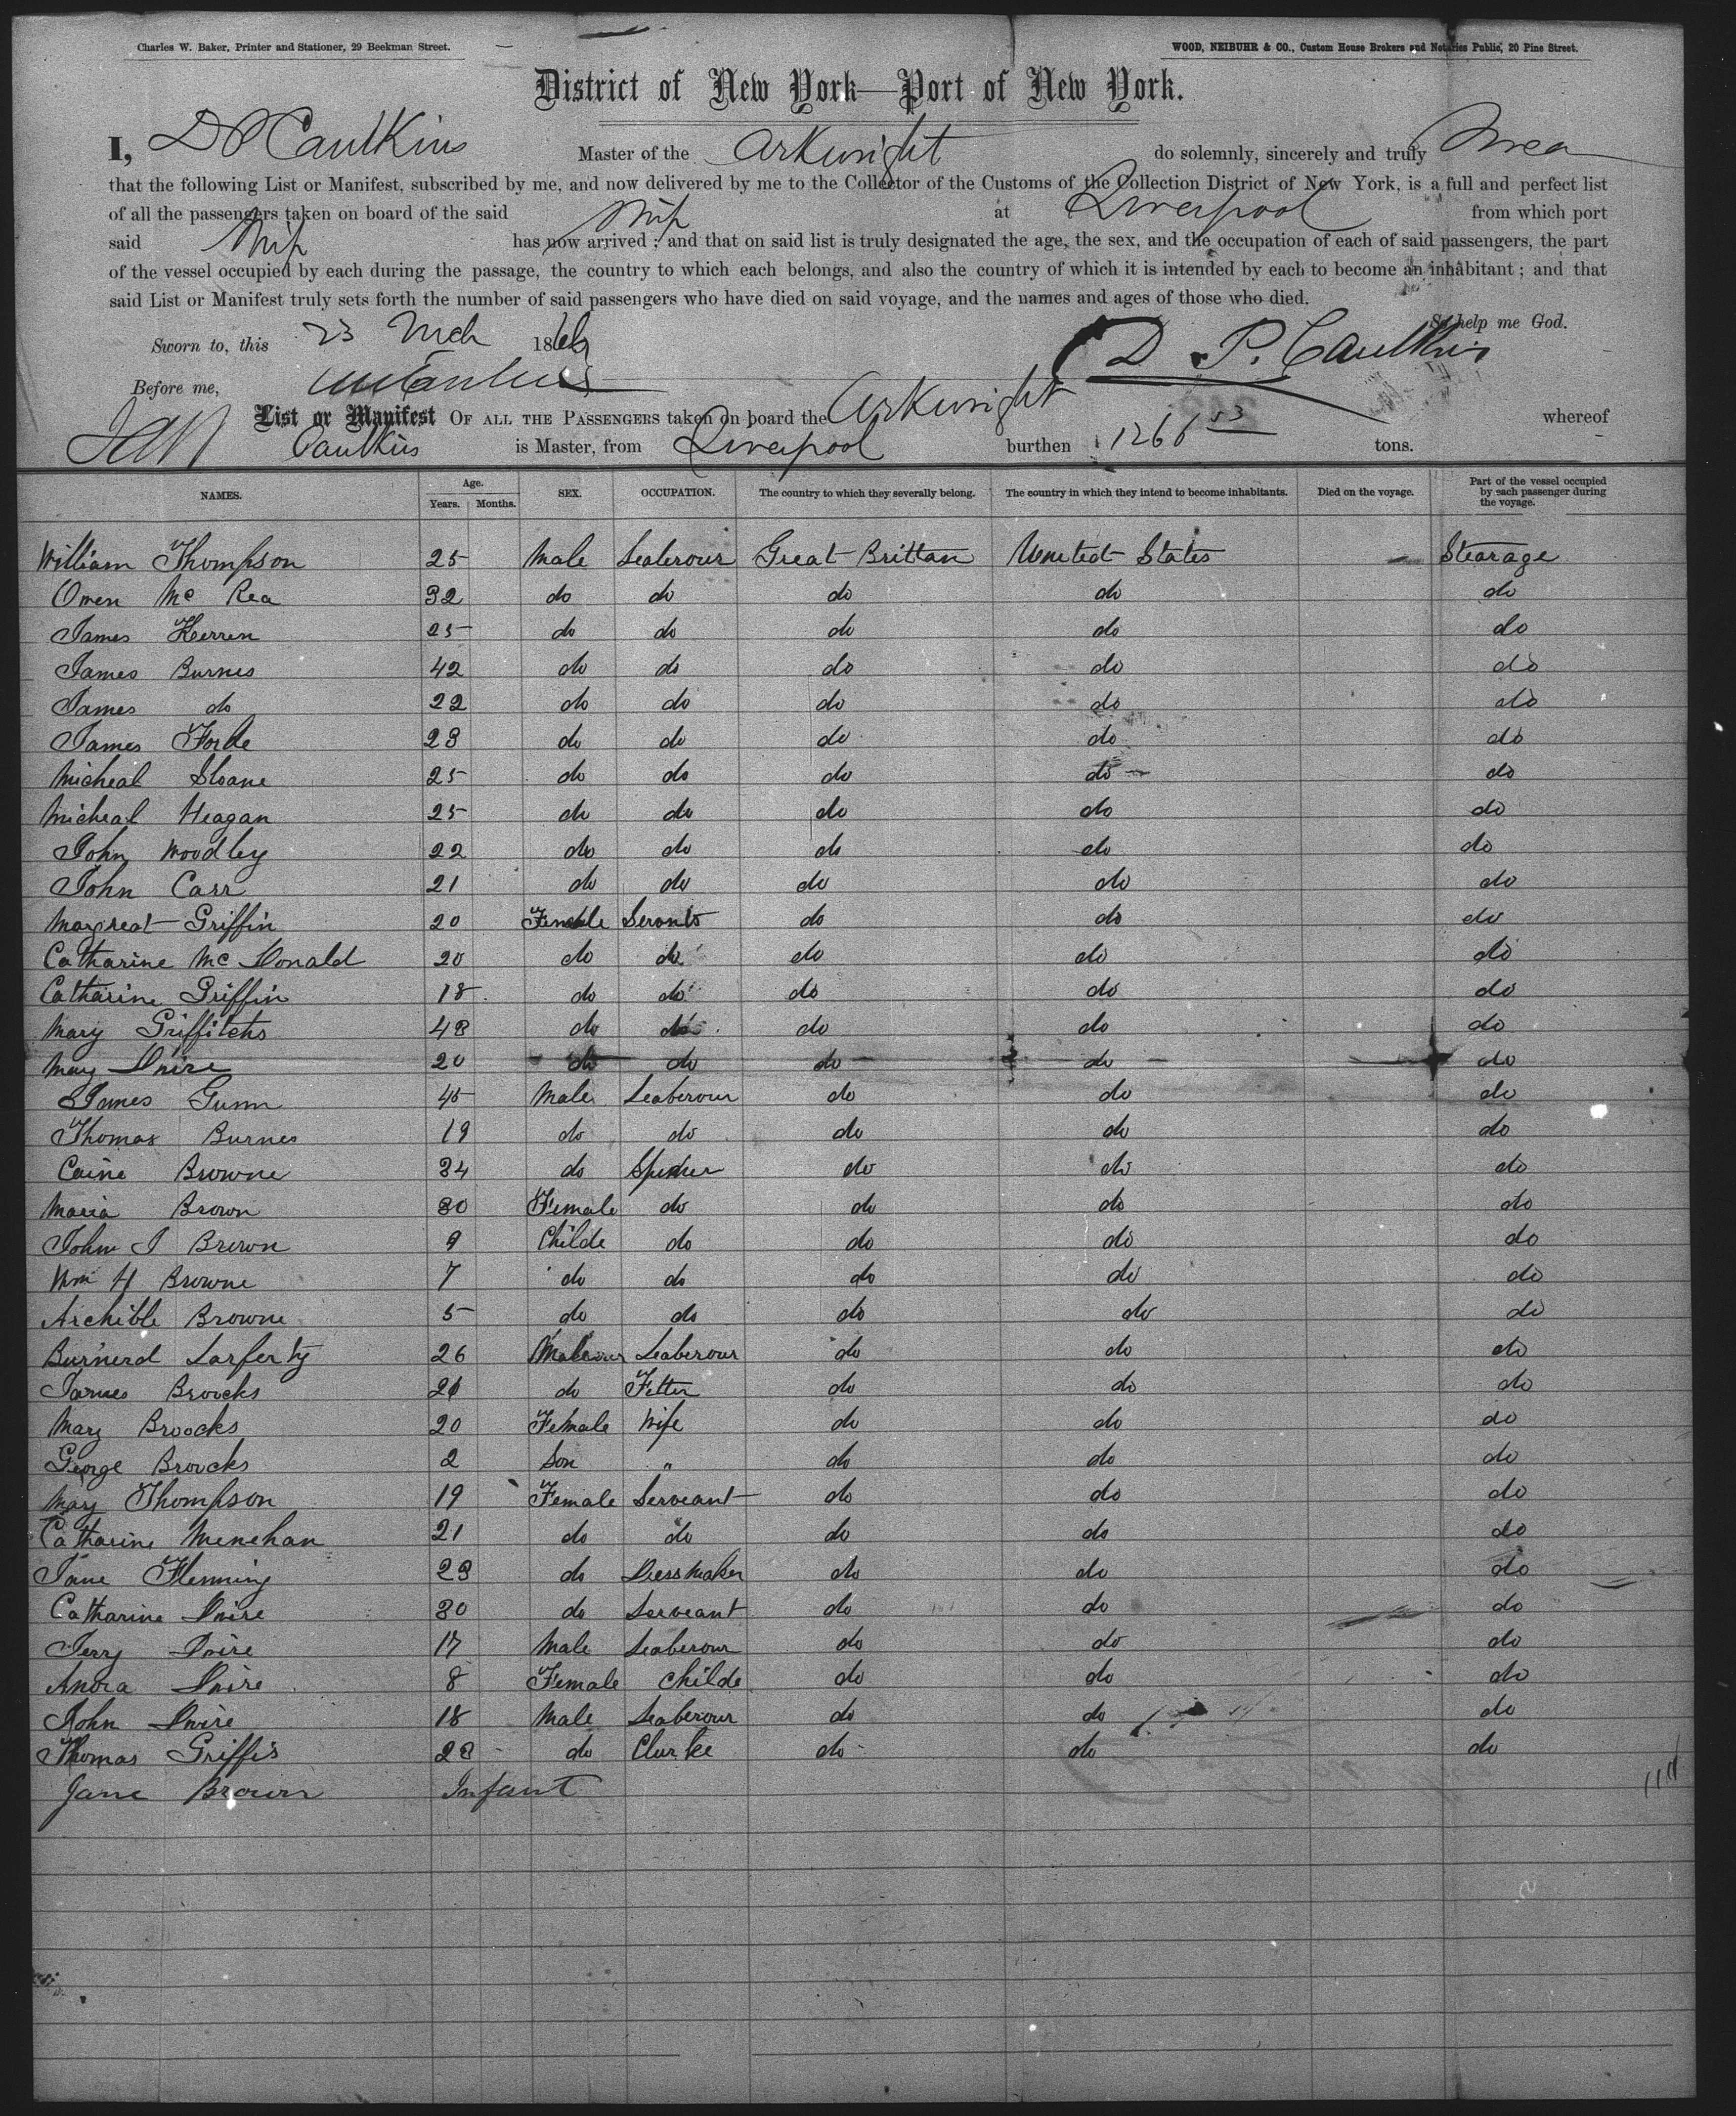 Charles W. Baker, Printer and Stationer, 29 Beekman Street.
WOOD, NEIBUHR & CO., Custom House Brokers and Notaries Public, 20 Pine Street.
District of New York—Port of New York.
I, D P Caulkins Master of the Arkwright do solemnly, sincerely and truly swear
that the following List or Manifest, subscribed by me, and now delivered by me to the Collector of the Customs of the Collection District of New York, is a full and perfect list
of all the passengers taken on board of the said Ship at Liverpool from which port
said Ship has now arrived ; and that on said list is truly designated the age, the sex, and the occupation of each of said passengers, the part
of the vessel occupied by each during the passage, the country to which each belongs, and also the country of which it is intended by each to become an inhabitant ; and that
said List or Manifest truly sets forth the number of said passengers who have died on said voyage, and the names and ages of those who died.
So help me God.
Sworn to, this 23 Mch 1866
D. P. Caulkins
Before me,
List or Manifest OF ALL THE PASSENGERS taken on board the Arkwright whereof
Caulkins is Master, from Liverpool burthen 1266 53 tons.
NAMES. Age. Years. Months. SEX. OCCUPATION. The country to which they severally belong. The country in which they intend to become inhabitants. Died on the voyage. Part of the vessel occupied by each passenger during the voyage.
William Thompson 25 Male Leaberour Great Brittan Uneted States Stearage
Owen Mc Rea 32 do do do do do
James Herren 25 do do do do do
James Burnes 42 do do do do do
James do 22 do do do do do
James Forde 23 do do do do do
Micheal Sloane 25 do do do do do
Micheal Heagan 25 do do do do do
John Woodley 22 do do do do do
John Carr 21 do do do do do
Margreat Griffin 20 Female Servants do do do
Catharine Mc Donald 20 do do do do do
Catharine Griffin 18 do do do do do
Mary Griffitehs 48 do do do do do
Mary Dwire 20 do do do do do
James Gunn 45 Male Leaberour do do do
Thomas Burnes 19 do do do do do
Caine Browne 34 do do do do
Maria Brown 30 Female do do do do
John J Brown 9 Childe do do do do
Wm H Browne 7 do do do do do
Archible Browne 5 do do do do do
Burnerd Larferty 26 Male Leaberour do do do
James Broocks 21 do Fitter do do do
Mary Broocks 20 Female Wife do do do
George Broocks 2 Son " do do do
Mary Thompson 19 Female Serveant do do do
Catharine Menehan 21 do do do do do
Jane Flemming 23 do Dressmaker do do do
Catharine Dwire 30 do Serveant do do do
Jerry Dwire 17 Male Leaberour do do do
Anora Dwire 8 Female Childe do do do
John Dwire 18 Male Leaberour do do do
Thomas Griffis 28 do Clurke do do do
Jane Brown Infant